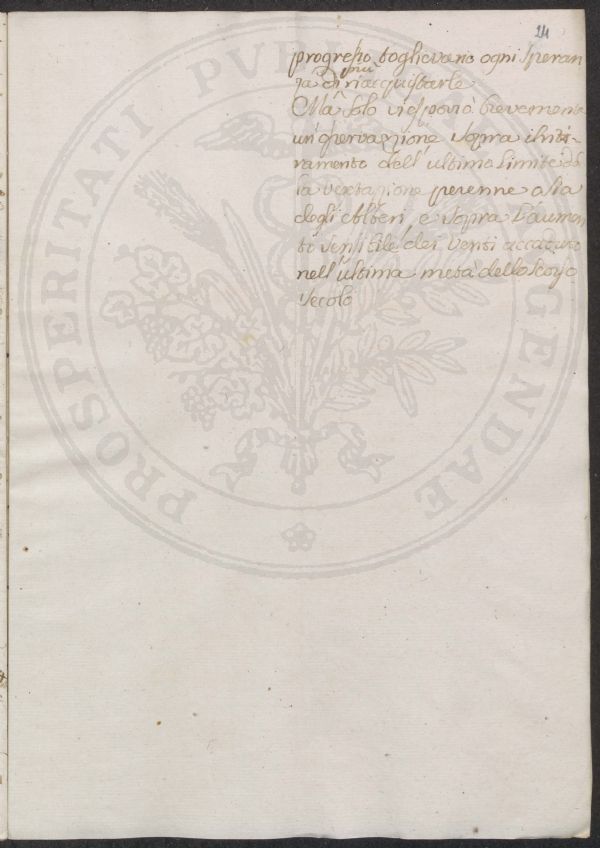 24
progresso toglievano ogni speran
za di più riacquistarle
Ma solo vi esporrò brevemente
un'osservazione sopra il riti-
ramento dell'ultimo limite del
la vegetazione perenne osia
degli alberi, e sopra l'aumen
to sensibile dei venti accaduto
nell'ultima metà dello scorso
secolo
PROSPERITATI PUBLICAE AUGENDAE